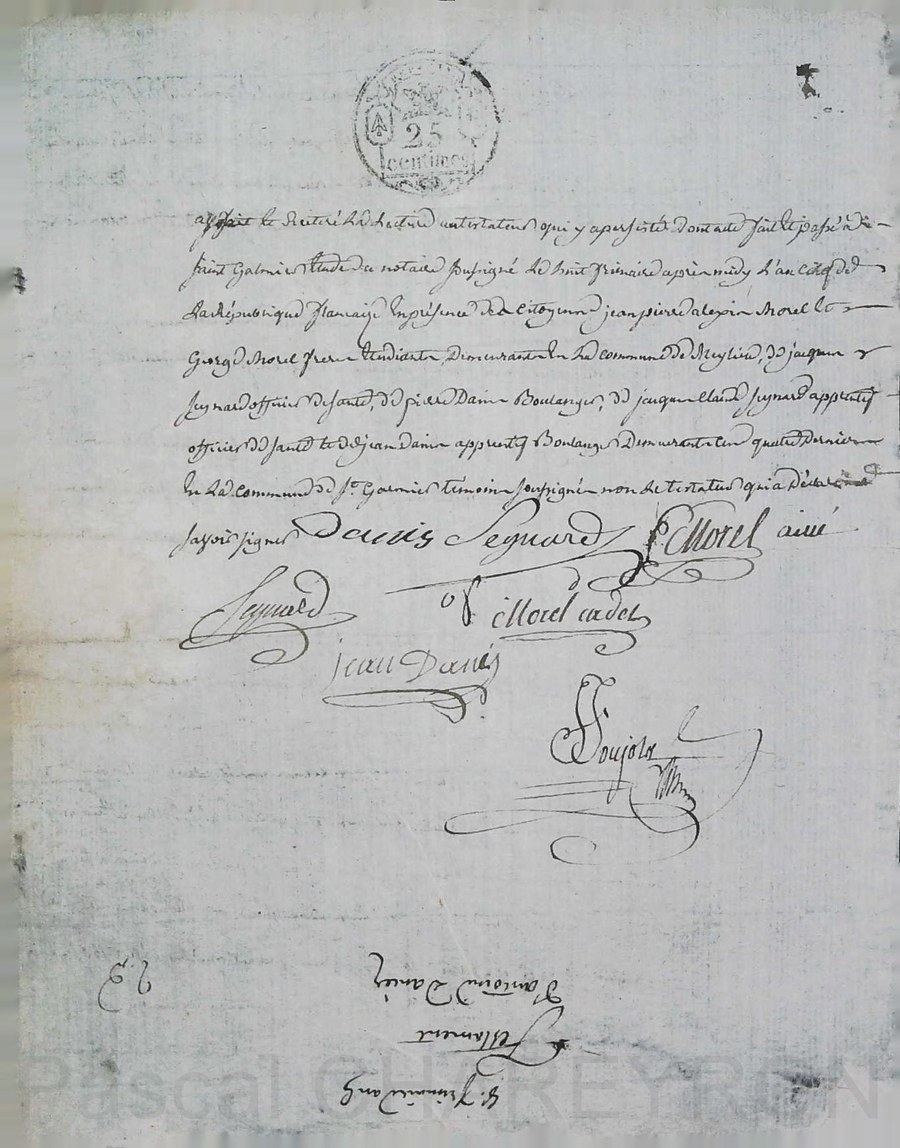 25
centimes
a fait et réitéré la lecture au testateur qui y a persisté dont acte fait et passé à
Saint Galmier étude du notaire soussigné le huit frimaire après midy l'an cinq de
la République française en présence des citoyens jean pierre alexis Morel et
George Morel frères étudiants demeurants en la commune de, de jacques
Seynard officier de santé, de pierre Danis Boulanger, de jacque Claude Seynard apprentif
officier de santé et de jean Danis apprentif Boulanger demeurants les quatre derniers
en la commune de St. Galmier témoins soussignés non le testateur qui a déclaré
savoir signer Danis Seynard P. Morel ainé
Seynard Morel cadet
jean Danis
Poujola
d'antoine Danis
Testament
8. frimaire an 5
Pascal CHAREYRON